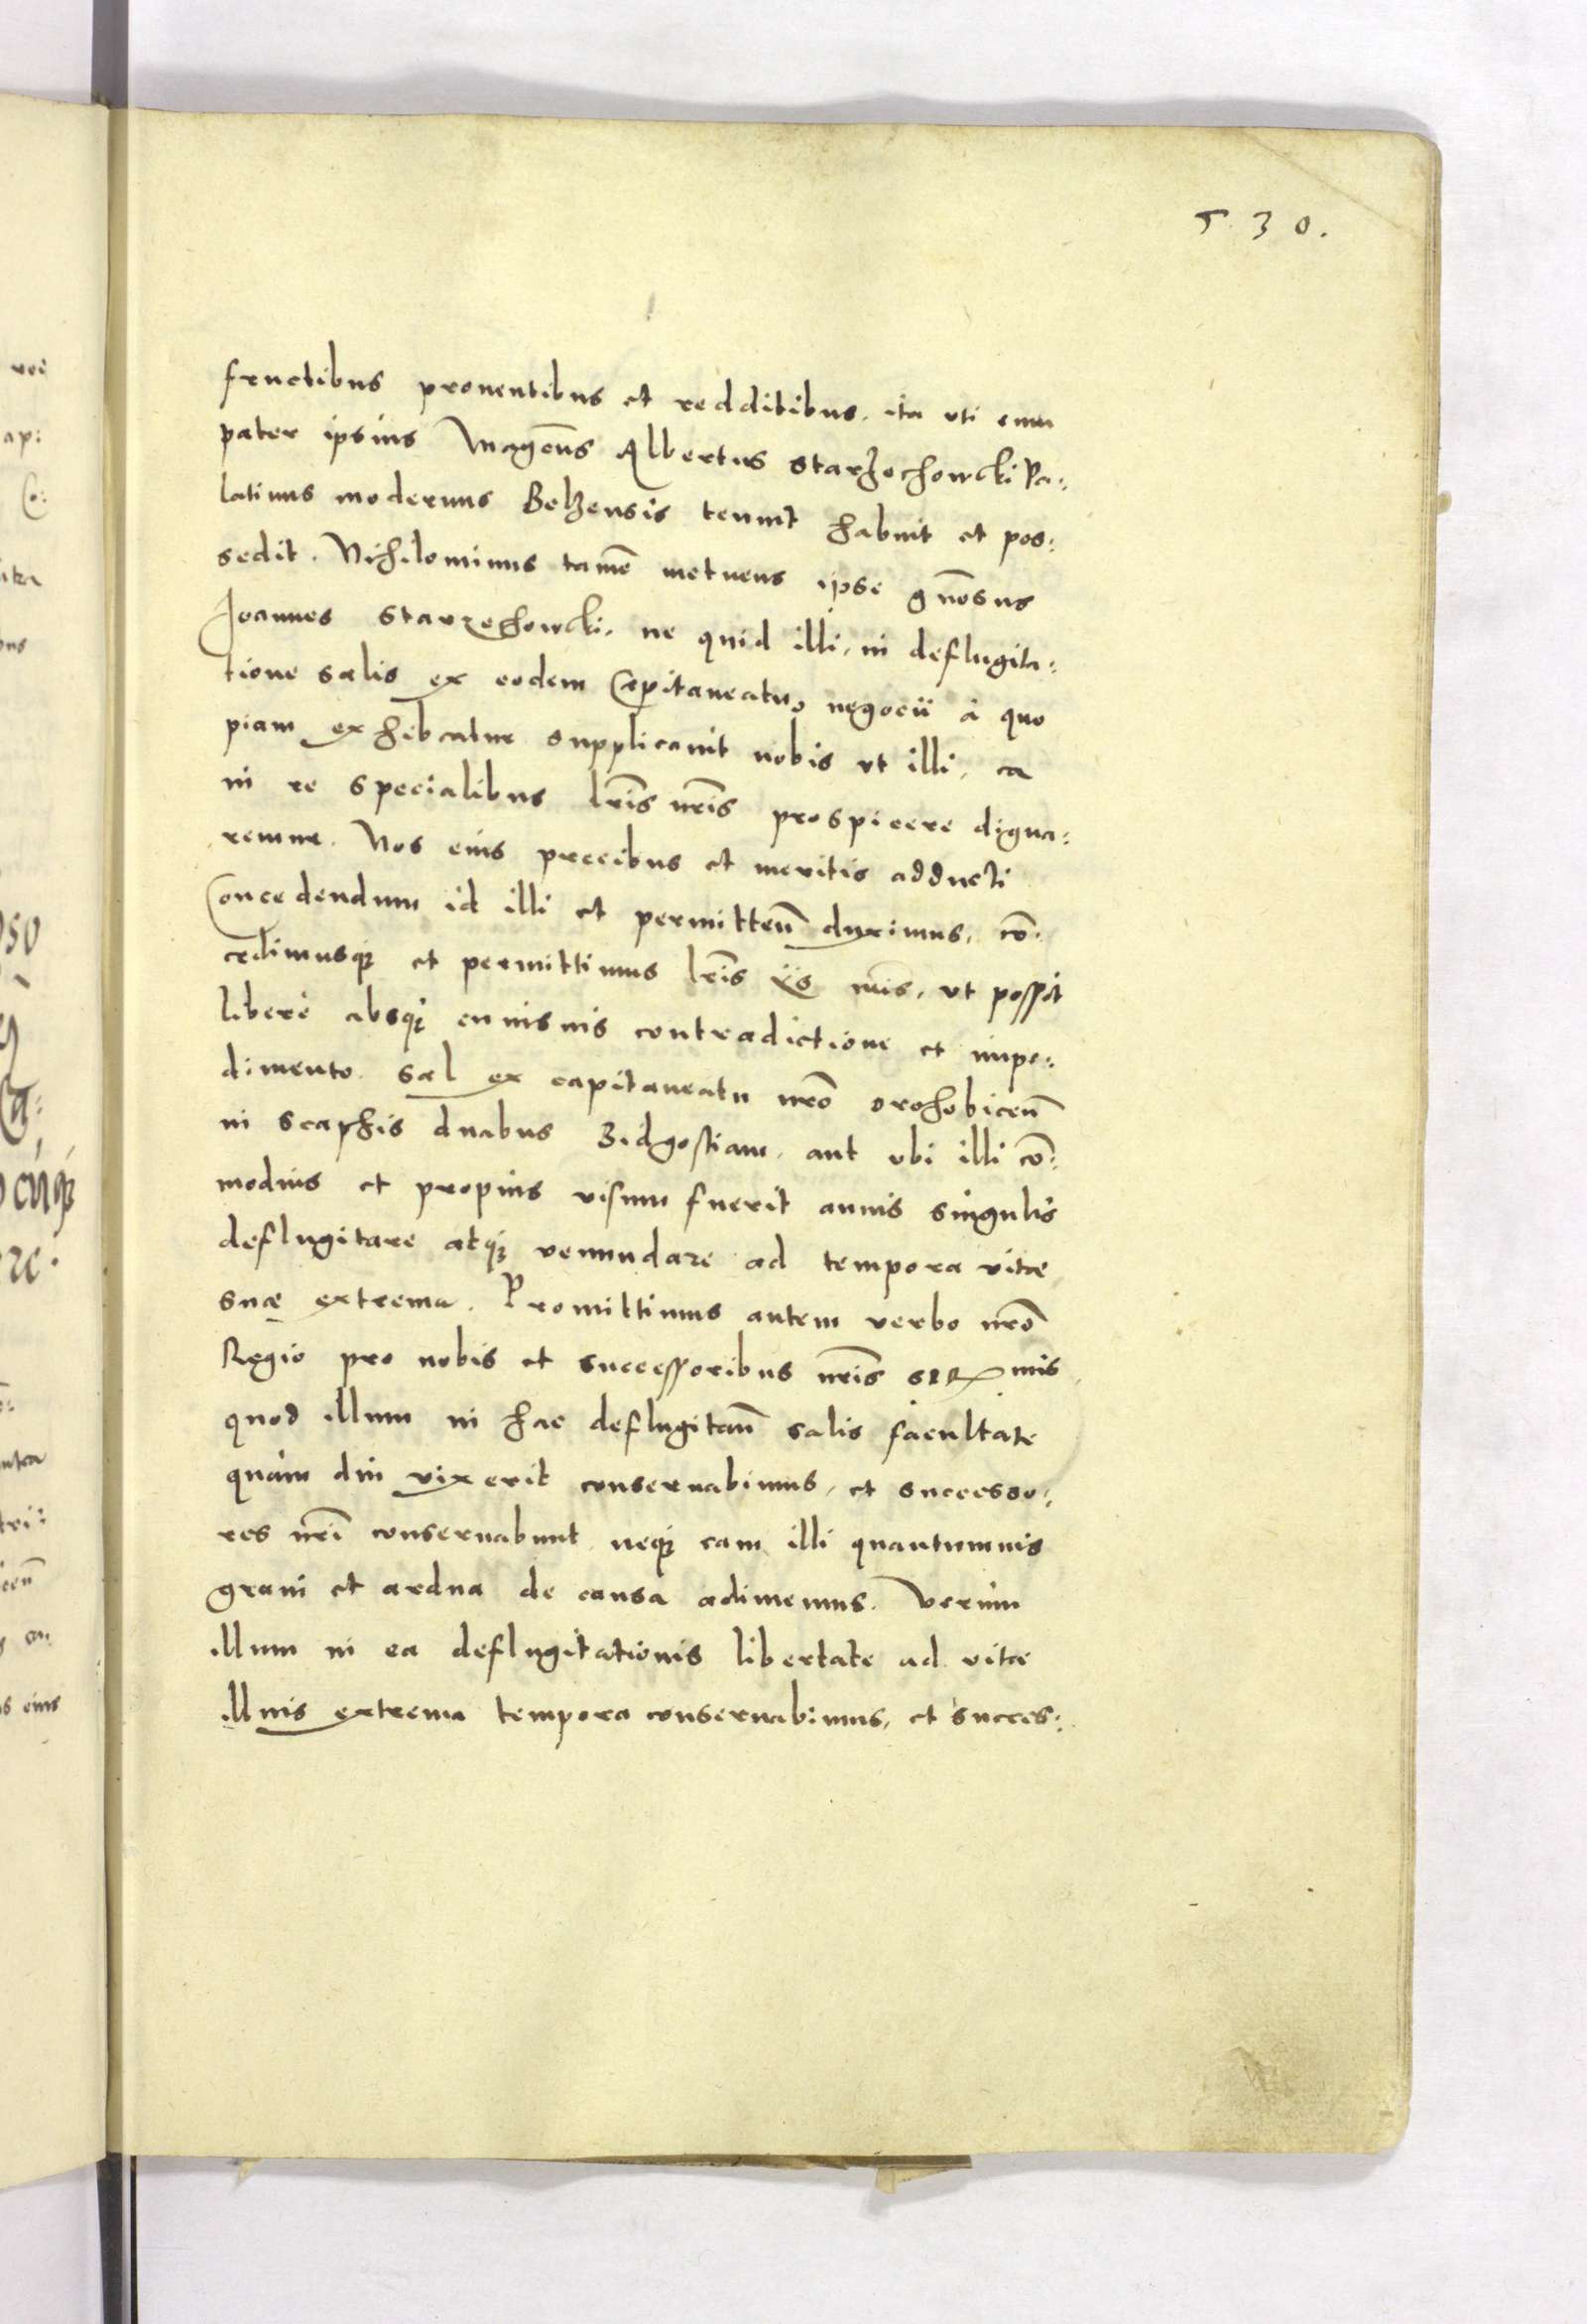 530.
fructibus prouentibus et redditibus. ita uti eum
pater ipsius Magcus Albertus Starzechowcki Pa:
latinus modernus Belzensis tenuit habuit et pos:
sedit. Nihilominus tamē metuens ipse gn̄osus
Joannes Starzechowcki, ne quid illi, in deflugita:
tione salis ex eodem Capitaneatu, negocii à quo
piam exhibeatur supplicauit nobis ut illi, ea
in re specialibus lr̄is nr̄is prospicere digna:
remur. Nos eius precibus et meritis adducti
Concedendum id illi et permitten̄ duximus, cō:
cedimusq; et permittimus lr̄is iis nr̄is, ut possit
liberè absq; cuiusuis contradictione et impe:
dimento. Sal ex capitaneatu nr̄o Drohobicen̄
in scaphis duabus Bidgostiam, aut ubi illi cō:
modius et propius uisum fuerit annis singulis
deflugitare atq; uenundare ad tempora uitæ
suæ extrema. Promittimus autem uerbo nr̄o
Regio pro nobis et successoribus nr̄is
quod illum in hac deflugitan̄ salis facultate
quàm diu uixerit conseruabimus, et successo:
res nr̄i conseruabunt neq; eam illi quantumuis
graui et ardua de causa adimemus. Verùm
illum in ea deflugitationis libertate ad uitæ
illius extrema tempora conseruabimus, et succes: